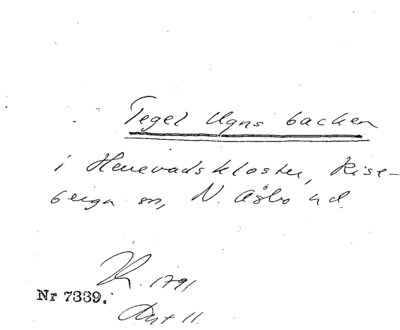 Tegel Ugns backen
i Herrevadskloster, Rise-
berga sn, N. Åsbo hd.
R. 1791
Nr 7339.
Akt 11.